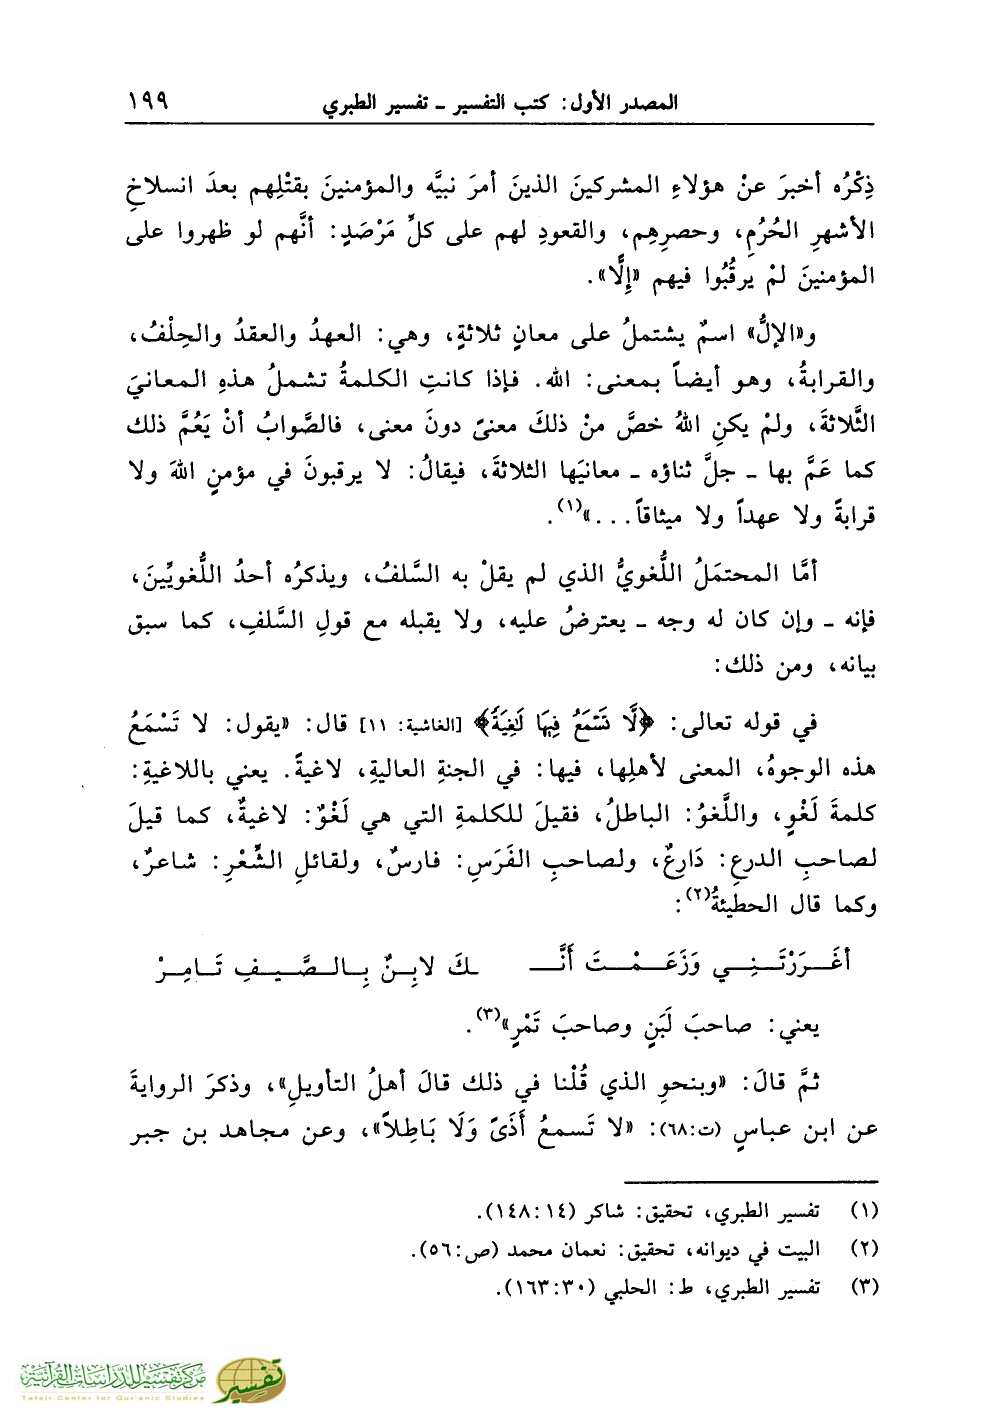 المصدر الأول: كتب التفسير ـ تفسير الطبري ١٩٩
ذِكْرُه أخبرَ عنْ هؤلاءِ المشركينَ الذينَ أمرَ نبيَّه والمؤمنينَ بقتْلِهم بعدَ انسلاخِ
الأشهرِ الحُرُمِ، وحصرِهِم، والقعودِ لهم على كلِّ مَرْصَدٍ: أنَّهم لو ظهروا على
المؤمنينَ لمْ يرقُبُوا فيهم «إلًّا».
و«الإلُّ» اسمٌ يشتملُ على معانٍ ثلاثةٍ، وهي: العهدُ والعقدُ والحِلْفُ،
والقرابةُ، وهو أيضاً بمعنى: الله. فإذا كانتِ الكلمةُ تشملُ هذهِ المعانيَ
الثَّلاثةَ، ولمْ يكنِ اللهُ خصَّ منْ ذلكَ معنىً دونَ معنى، فالصَّوابُ أنْ يَعُمَّ ذلك
كما عَمَّ بها ـ جلَّ ثناؤه ـ معانيَها الثلاثةَ، فيقالُ: لا يرقبونَ في مؤمنٍ اللهَ ولا
قرابةً ولا عهداً ولا ميثاقاً...»(١).
أمَّا المحتمَلُ اللُّغويُّ الذي لم يقلْ به السَّلفُ، ويذكرُه أحدُ اللغويِّينَ،
فإنه ـ وإن كان له وجه ـ يعترضُ عليه، ولا يقبله مع قولِ السَّلفِ، كما سبق
بيانه، ومن ذلك:
في قوله تعالى: ﴿لَّا تَسْمَعُ فِيهَا لَٰغِيَةً﴾ [الغاشية: ١١] قال: «يقول: لا تَسْمَعُ
هذه الوجوهُ، المعنى لأهلِها، فيها: في الجنةِ العاليةِ، لاغيةً. يعني باللاغيةِ:
كلمةَ لَغْوٍ، واللَّغوُ: الباطلُ، فقيلَ للكلمةِ التي هي لَغْوٌ: لاغيةٌ، كما قيلَ
لصاحبِ الدرعِ: دَارِعٌ، ولصاحبِ الفَرَسِ: فارسٌ، ولقائلِ الشِّعْرِ: شاعرٌ،
وكما قال الحطيئةُ(٢):
أغَـرَرْتَـنِـي وَزَعَـمْـتَ أَنَّـ ـكَ لابِـنٌ بِـالـصَّـيـفِ تَـامِـرْ
يعني: صاحبَ لَبَنٍ وصاحبَ تَمْرٍ»(٣).
ثمَّ قالَ: «وبنحوِ الذي قُلْنا في ذلك قالَ أهلُ التأويلِ»، وذكرَ الروايةَ
عن ابن عباسٍ (ت:٦٨): «لا تَسمعُ أَذَىً وَلَا بَاطِلاً»، وعن مجاهد بن جبر
(١) تفسير الطبري، تحقيق: شاكر (١٤٨:١٤).
(٢) البيت في ديوانه، تحقيق: نعمان محمد (ص:٥٦).
(٣) تفسير الطبري، ط: الحلبي (١٦٣:٣٠).
مركز تفسير للدراسات القرآنية تفسير
Tafsir Center for Qur'anic Studies